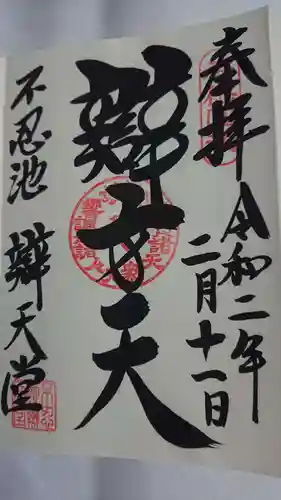 奉拝
令和二年
二月十一日
辯才天
不忍池
辯天堂